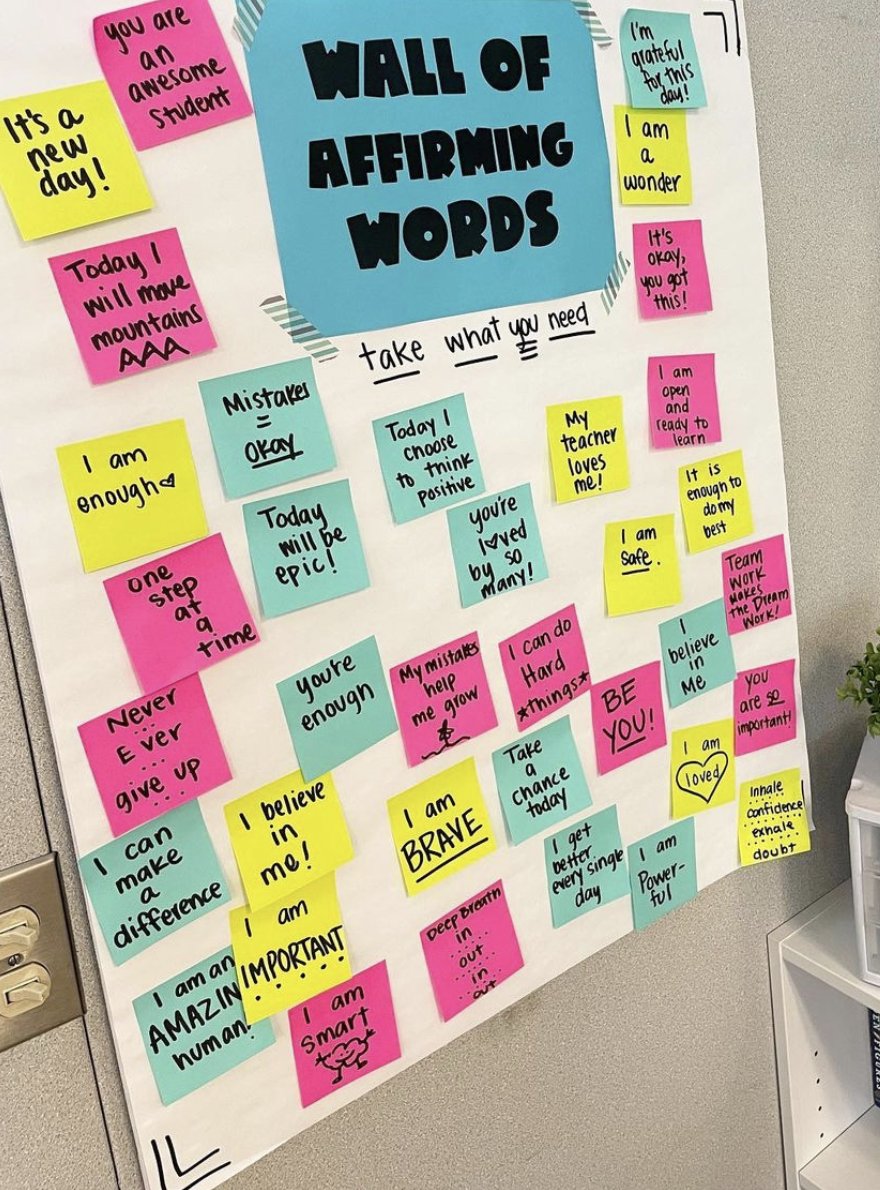 WALL OF
AFFIRMING
WORDS
take what you need
you are
an
awesome
student
It's a
new
day!
Today I
will move
mountains
I'm
grateful
for this
day!
I am
a
wonder
It's
okay,
you got
this!
I am
open
and
ready to
learn
Mistakes
=
okay
Today I
choose
to think
positive
My
teacher
loves
me!
I am
enough
Today
will be
epic!
you're
loved
by so
many!
I am
safe.
It is
enough to
do my
best
one
step
at
a
time
Team
work
makes
the Dream
Work!
I
believe
in
Me
you're
enough
My mistakes
help
me grow
I can do
Hard
*things*
BE
YOU!
You
are so
important!
Never
Ever
give up
I am
loved
Take
a
chance
today
I believe
in
me!
I am
BRAVE
Inhale
confidence
exhale
doubt
I can
make
a
difference
I get
better
every single
day
I am
Power-
ful
I am
IMPORTANT
Deep Breath
in
out
in
out
I am an
AMAZIN
human!
I am
smart